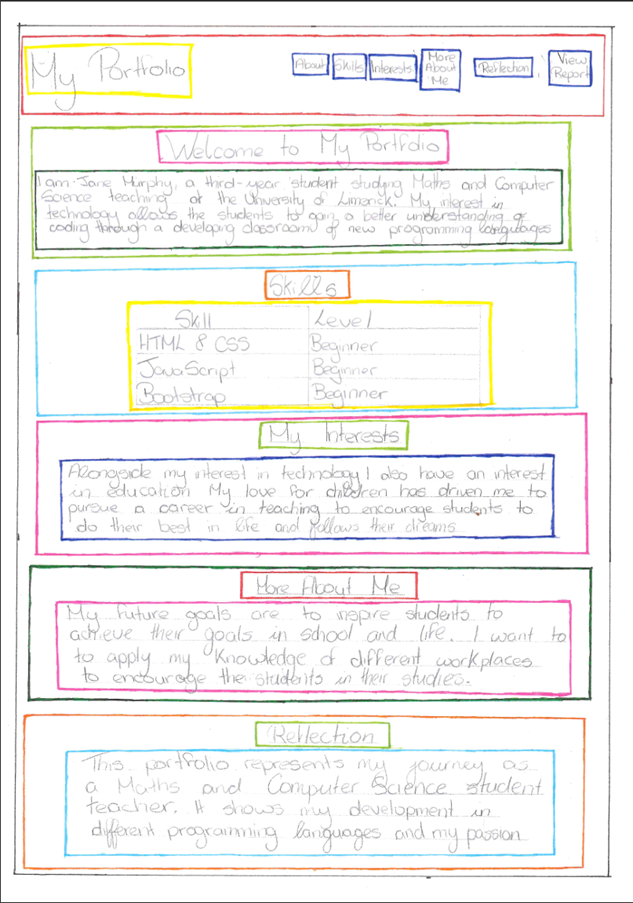 My Portfolio
About Skills Interests More About Me Reflection View Report
Welcome to My Portfolio
I am Jane Murphy, a third-year student studying Maths and Computer
Science teaching at the University of Limerick. My interest in
technology allows the students to gain a better understanding of
coding through a developing classroom of new programming languages
Skills
Skill Level
HTML & CSS Beginner
JavaScript Beginner
Bootstrap Beginner
My Interests
Alongside my interest in technology I also have an interest
in education My love for children has driven me to
pursue a career in teaching to encourage students to
do their best in life and follows their dreams
More About Me
My future goals are to inspire students to
achieve their goals in school and life. I want to
to apply my knowledge of different workplaces
to encourage the students in their studies.
Reflection
This portfolio represents my journey as
a Maths and Computer Science student
teacher. It shows my development in
different programming languages and my passion